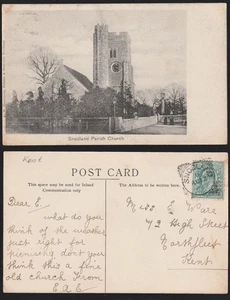 Snodland Parish Church
Kent
POST CARD
This space may be used for Inland
Communication only
(Address to be written here)
Dear E.
what do you
think of the weather
just right for
picnicing dont you
think this a fine
old church from
E.A.E
Miss E. Ware
72 High Street
Northfleet
Kent